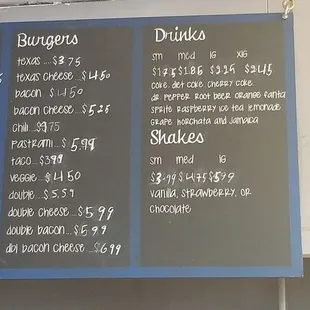 Burgers
texas ....$3.75
texas cheese..$4.50
bacon ...$4.50
bacon cheese...$5.25
chili ...$3.75
pastrami...$5.99
taco...$3.99
veggie...$4.50
double...$5.59
double cheese...$5.99
double bacon...$5.99
dbl bacon cheese...$6.99
Drinks
sm med lg xlg
$1.75 $1.85 $2.25 $2.45
coke diet coke cherry coke
dr pepper root beer orange fanta
sprite raspberry ice tea lemonade
grape horchata and jamaica
Shakes
sm med lg
$3.99 $4.75 $5.99
vanilla, strawberry, or
chocolate